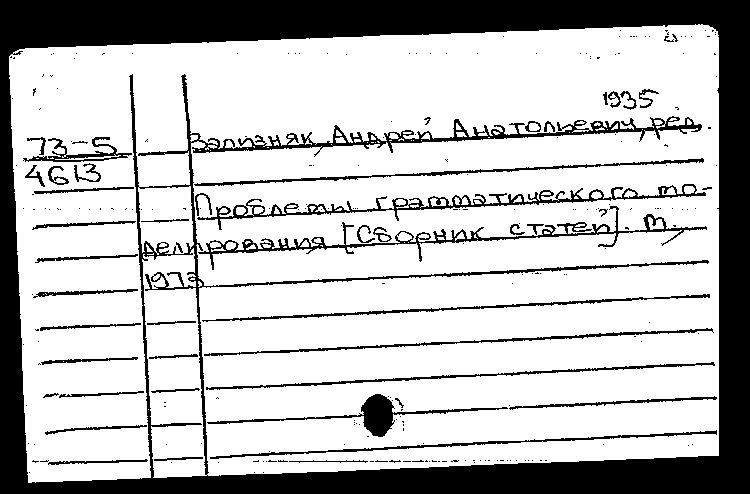 1935
73-5
4613
Зализняк, Андрей Анатольевич, ред.
Проблемы грамматического мо-
делирования [Сборник статей]. М.,
1973